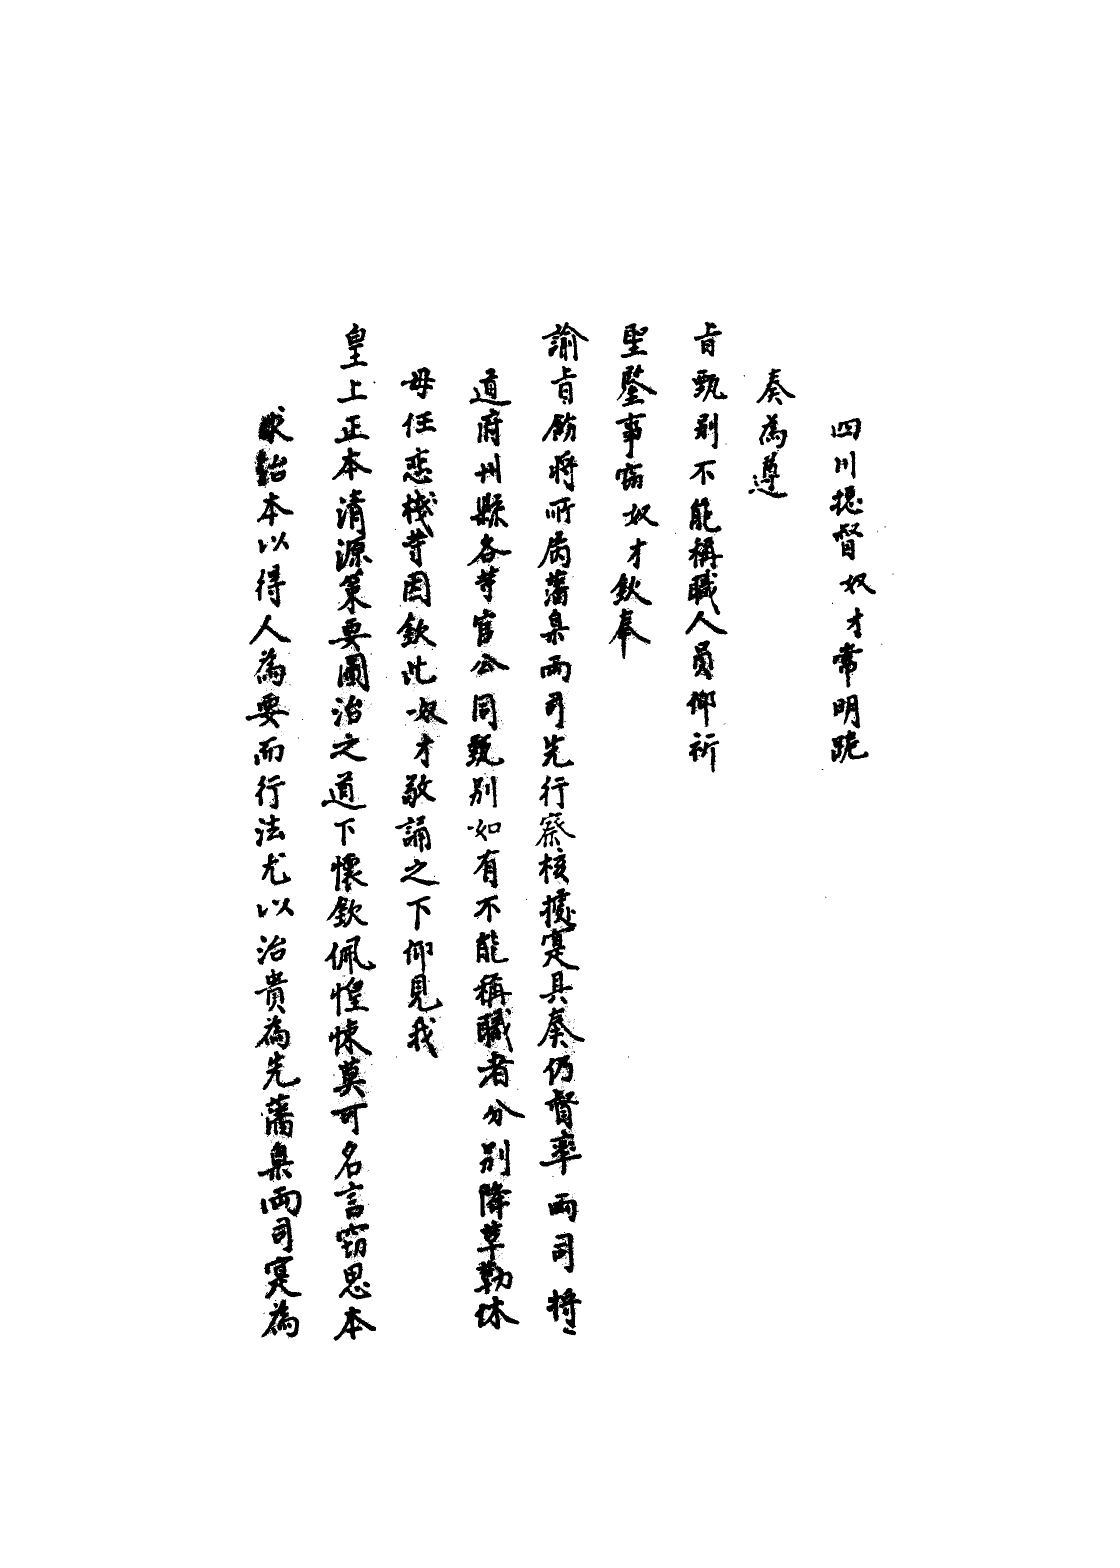 四川總督奴才常明跪
奏為遵
旨甄別不能稱職人員仰祈
聖鑒事竊奴才欽奉
諭旨飭將所屬藩臬兩司先行察核據寔具奏仍督率兩司將
道府州縣各等官公同甄別如有不能稱職者分別降革勒休
毋任戀棧等因欽此奴才敬誦之下仰見我
皇上正本清源策要圖治之道下懷欽佩惶悚莫可名言竊思本
求治本以得人為要而行法尤以治貴為先藩臬兩司寔為